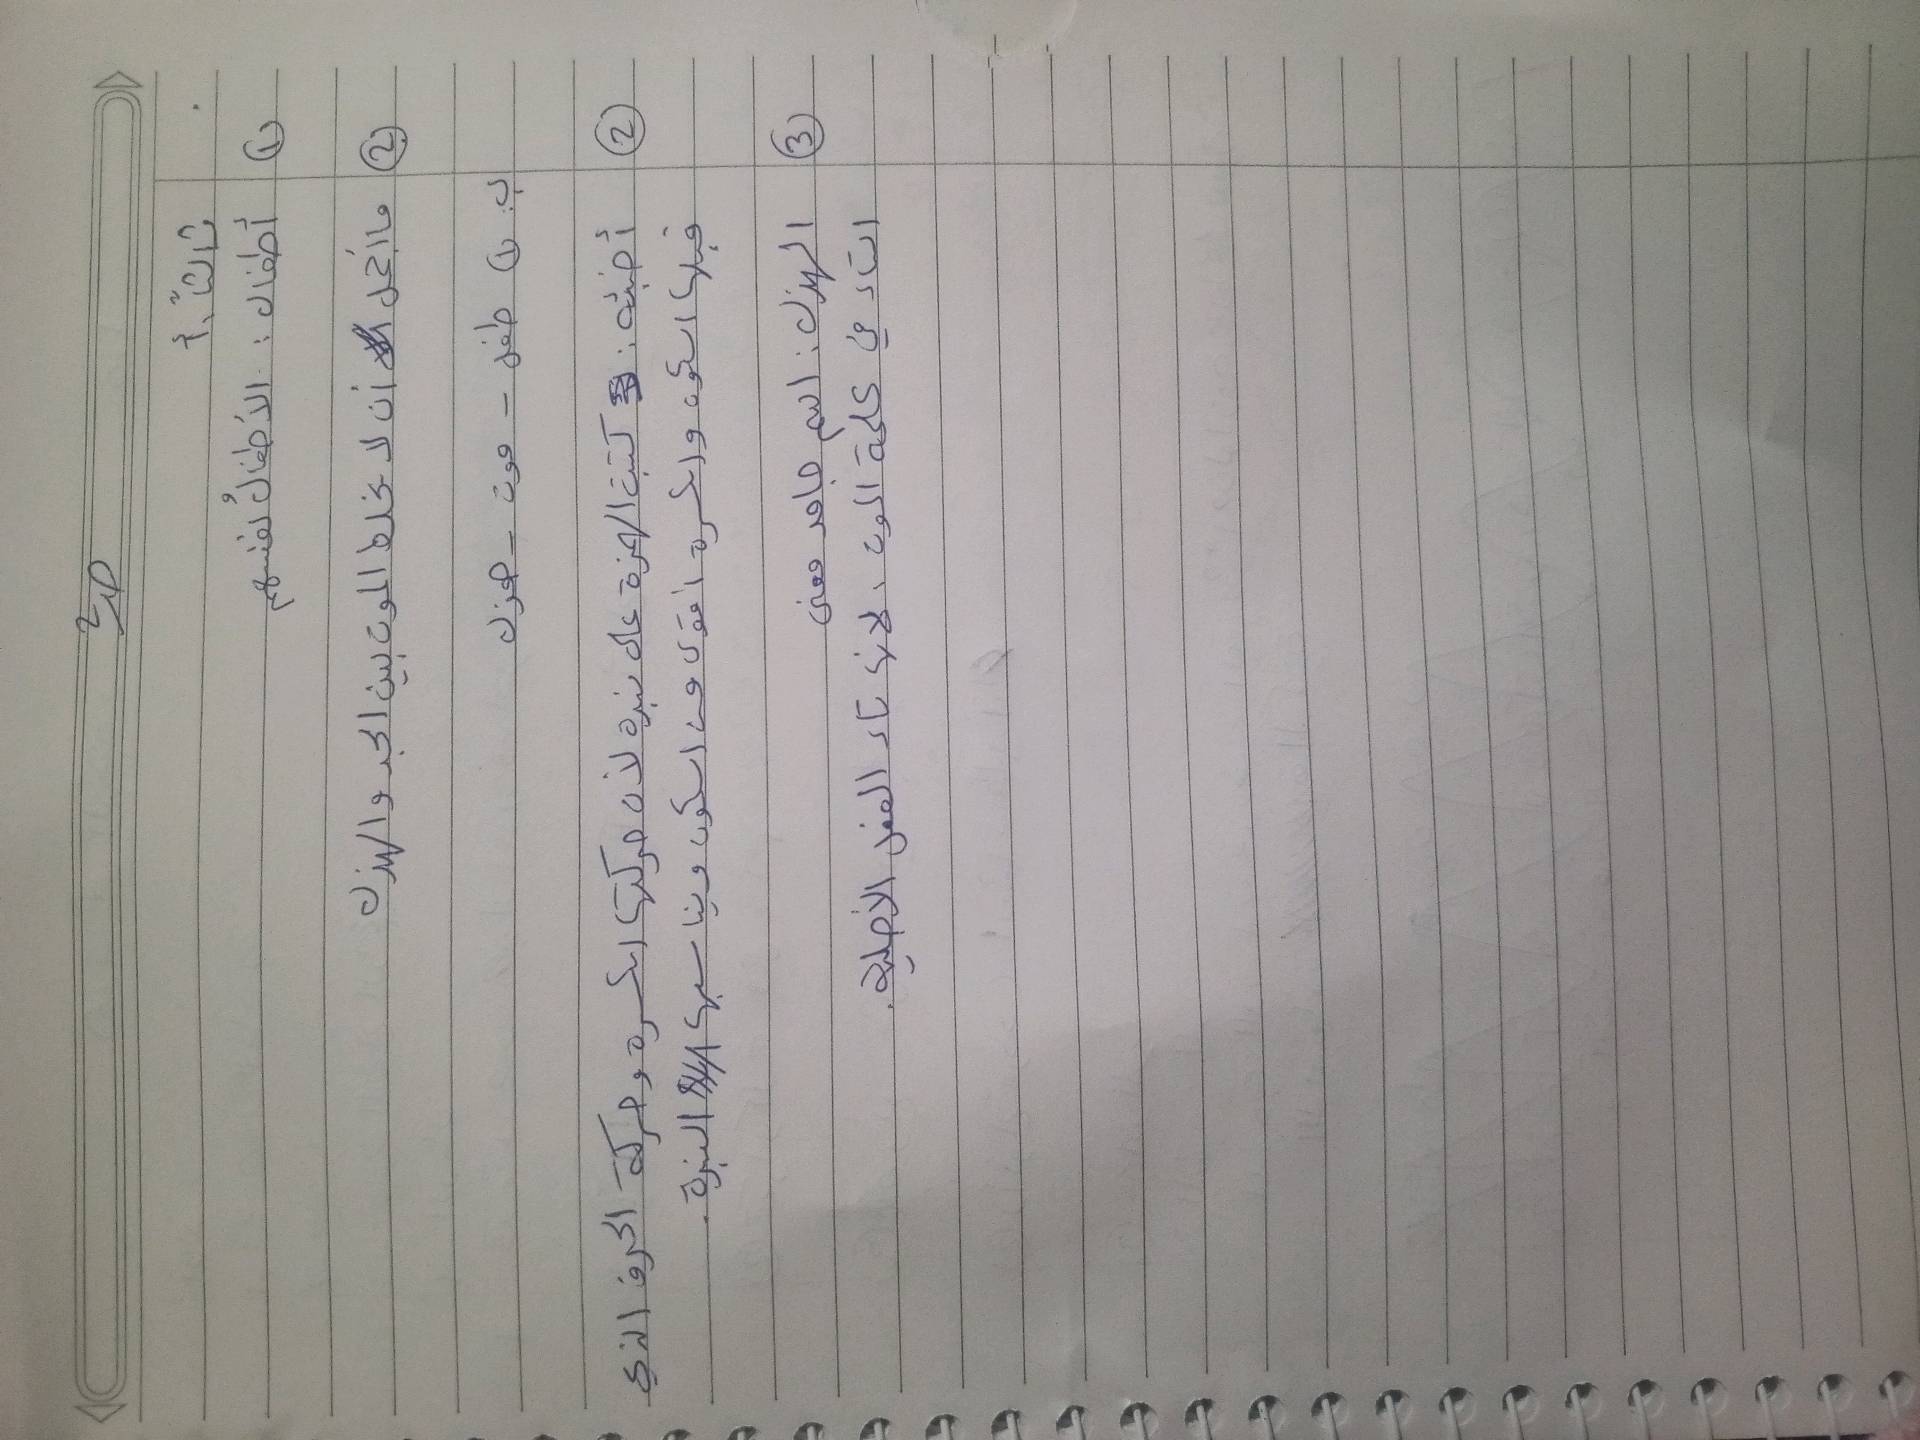 ص٢
ثالثاً: أ
① أطفال: الأطفالُ نفسهم
② ما أجمل أن لا يخلط الموت بين الجد والهزل
ب. ① طفل - موت - هزل
② أخبئه: كتبت الهمزة على نبرة لأن حركتها الكسرة وحركة الحرف الذي
قبلها السكون والكسرة أقوى من السكون ويناسبها النبرة.
③ الهزل: اسم جامد معنى
التاء في كلمة الموت، لانها تاء الفعل الأصلية.